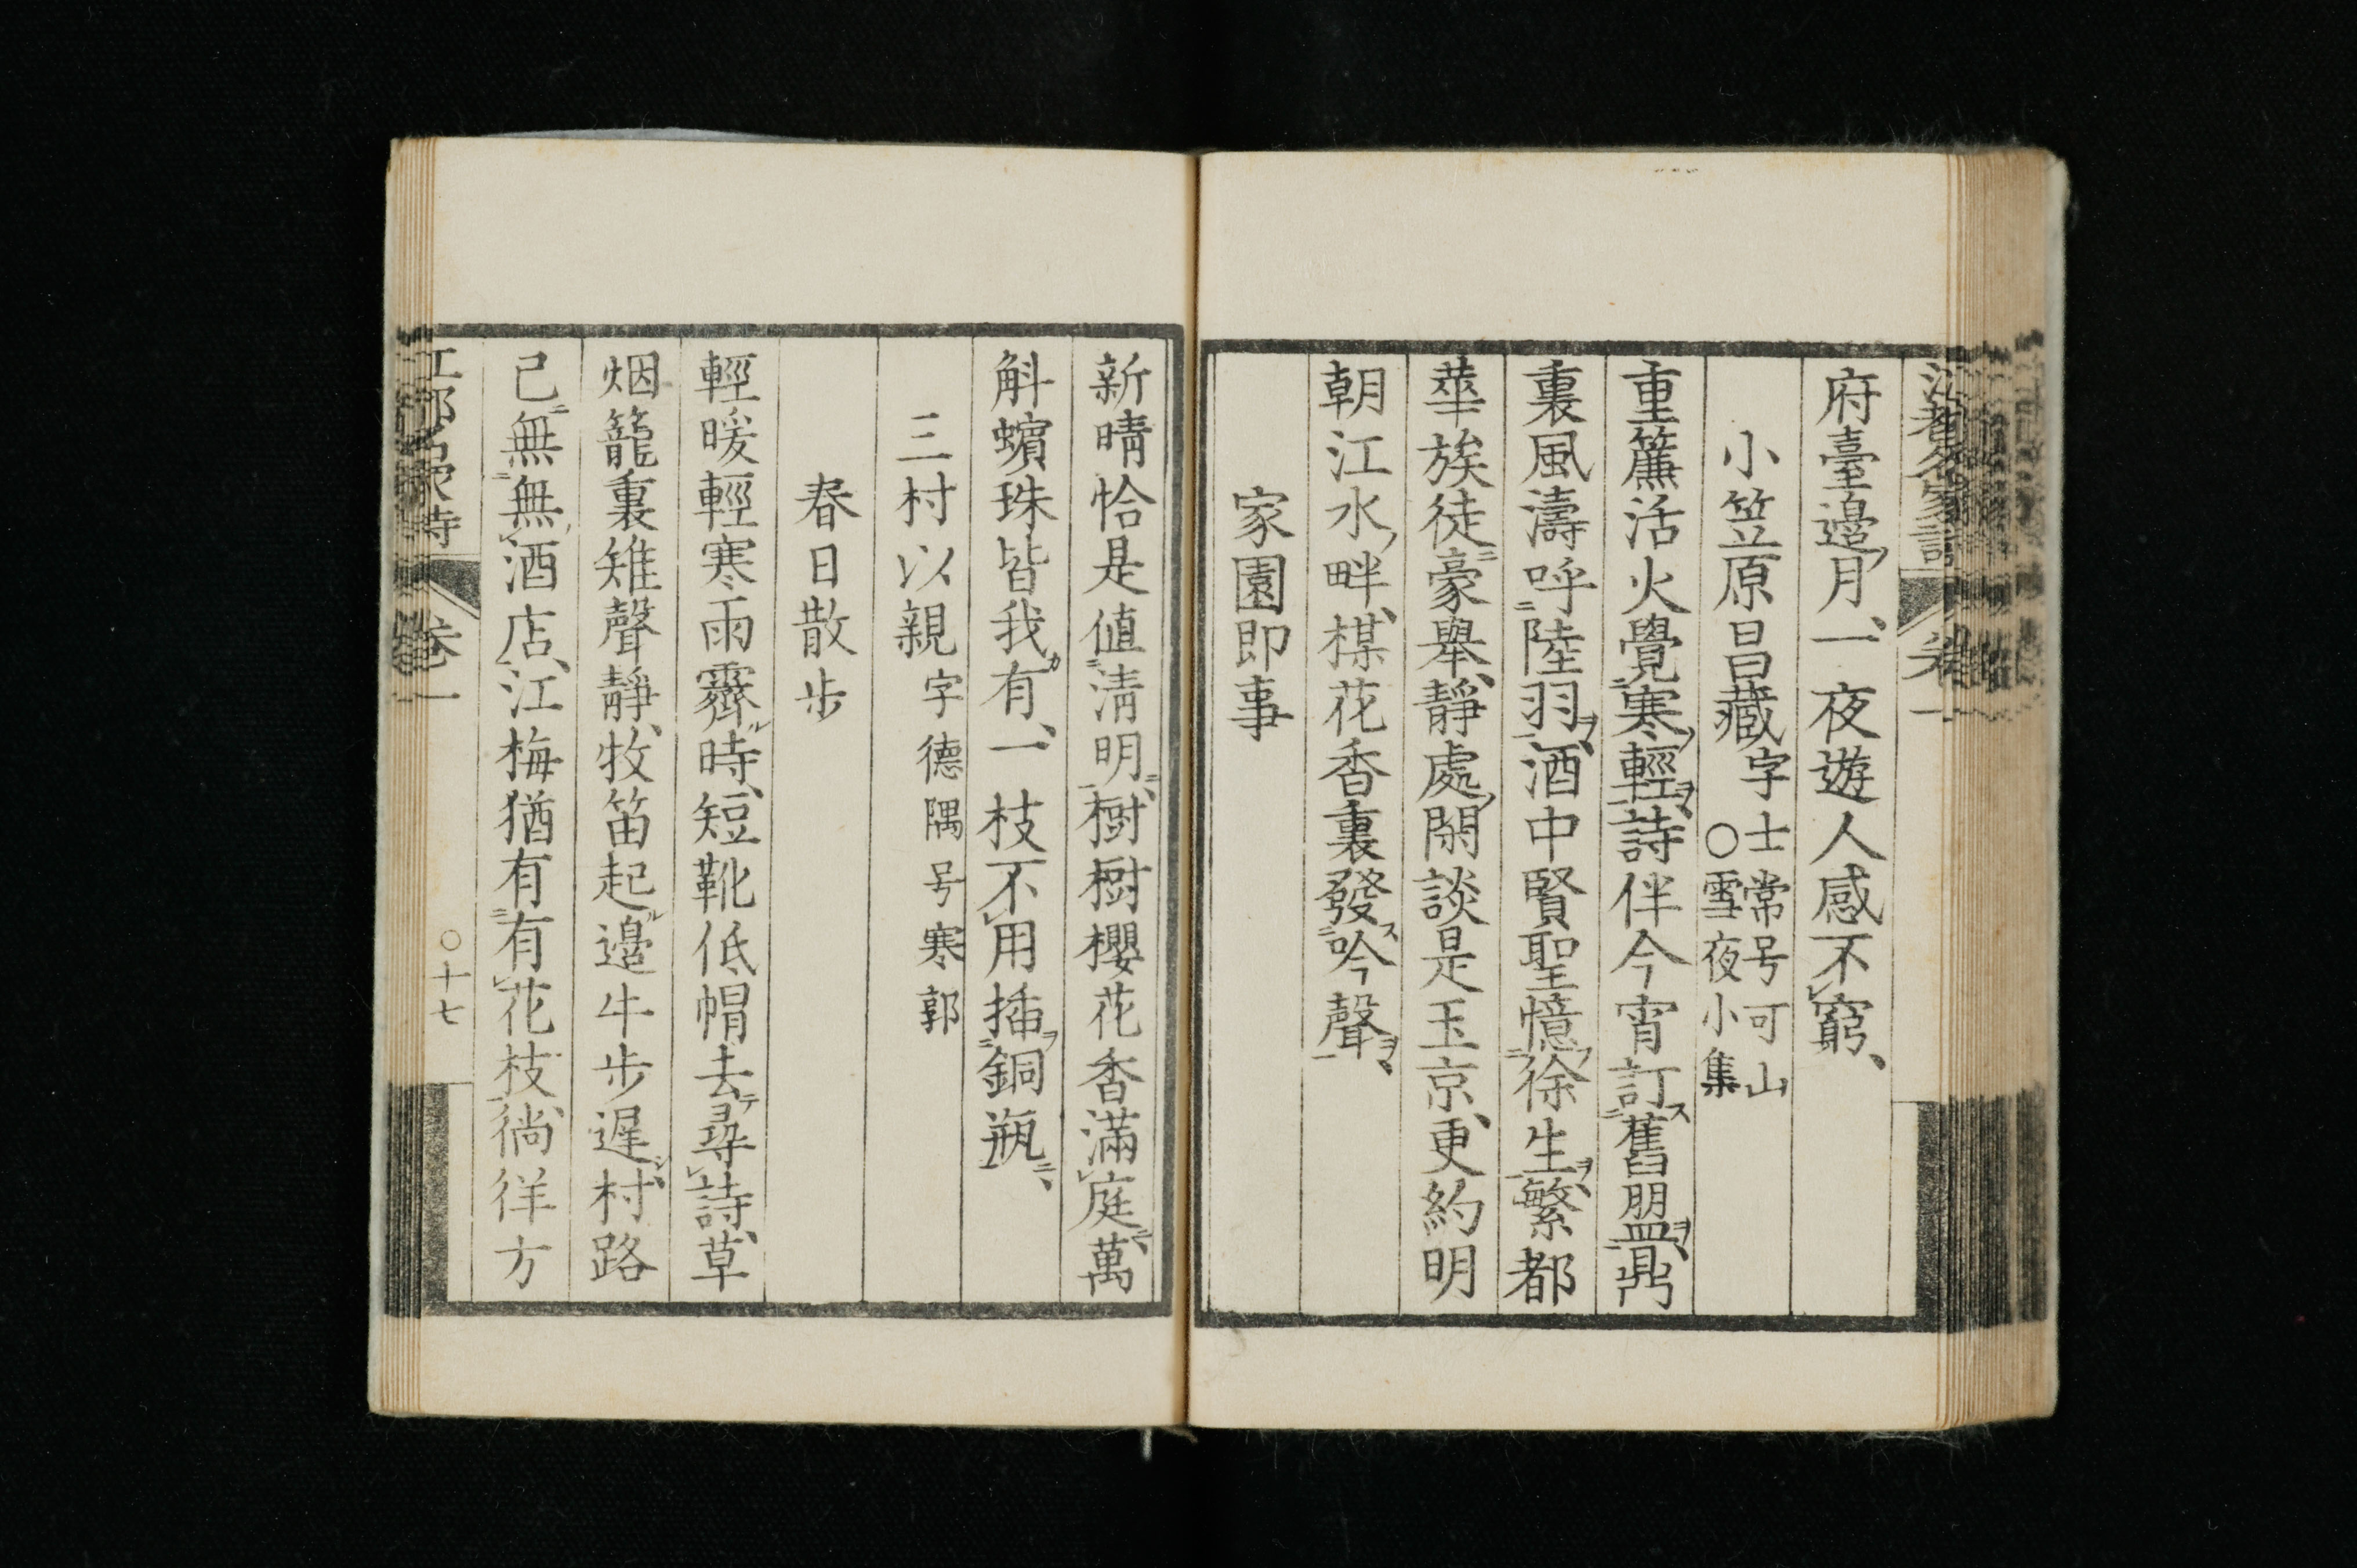 府臺邉月、一夜遊人感不窮、
小笠原昌藏字士常号可山
○雪夜小集
重簾活火覺寒輕、詩伴今宵訂舊盟、鼎
裏風濤呼陸羽、酒中賢聖憶徐生、繁都
華族徒豪舉、靜處閑談是玉京、更約明
朝江水畔、楳花香裏發吟聲、
家園即事
新晴恰是値淸明、樹樹櫻花香滿庭、萬
斛蠙珠皆我有、一枝不用插銅瓶、
三村以親字德隅号寒郭
春日散步
輕暖輕寒雨霽時、短靴低帽去尋詩、草
烟籠裏雉聲靜、牧笛起邉牛步遲、村路
已無無酒店、江梅猶有有花枝、徜徉方
江都名家詩 卷一 ○十七